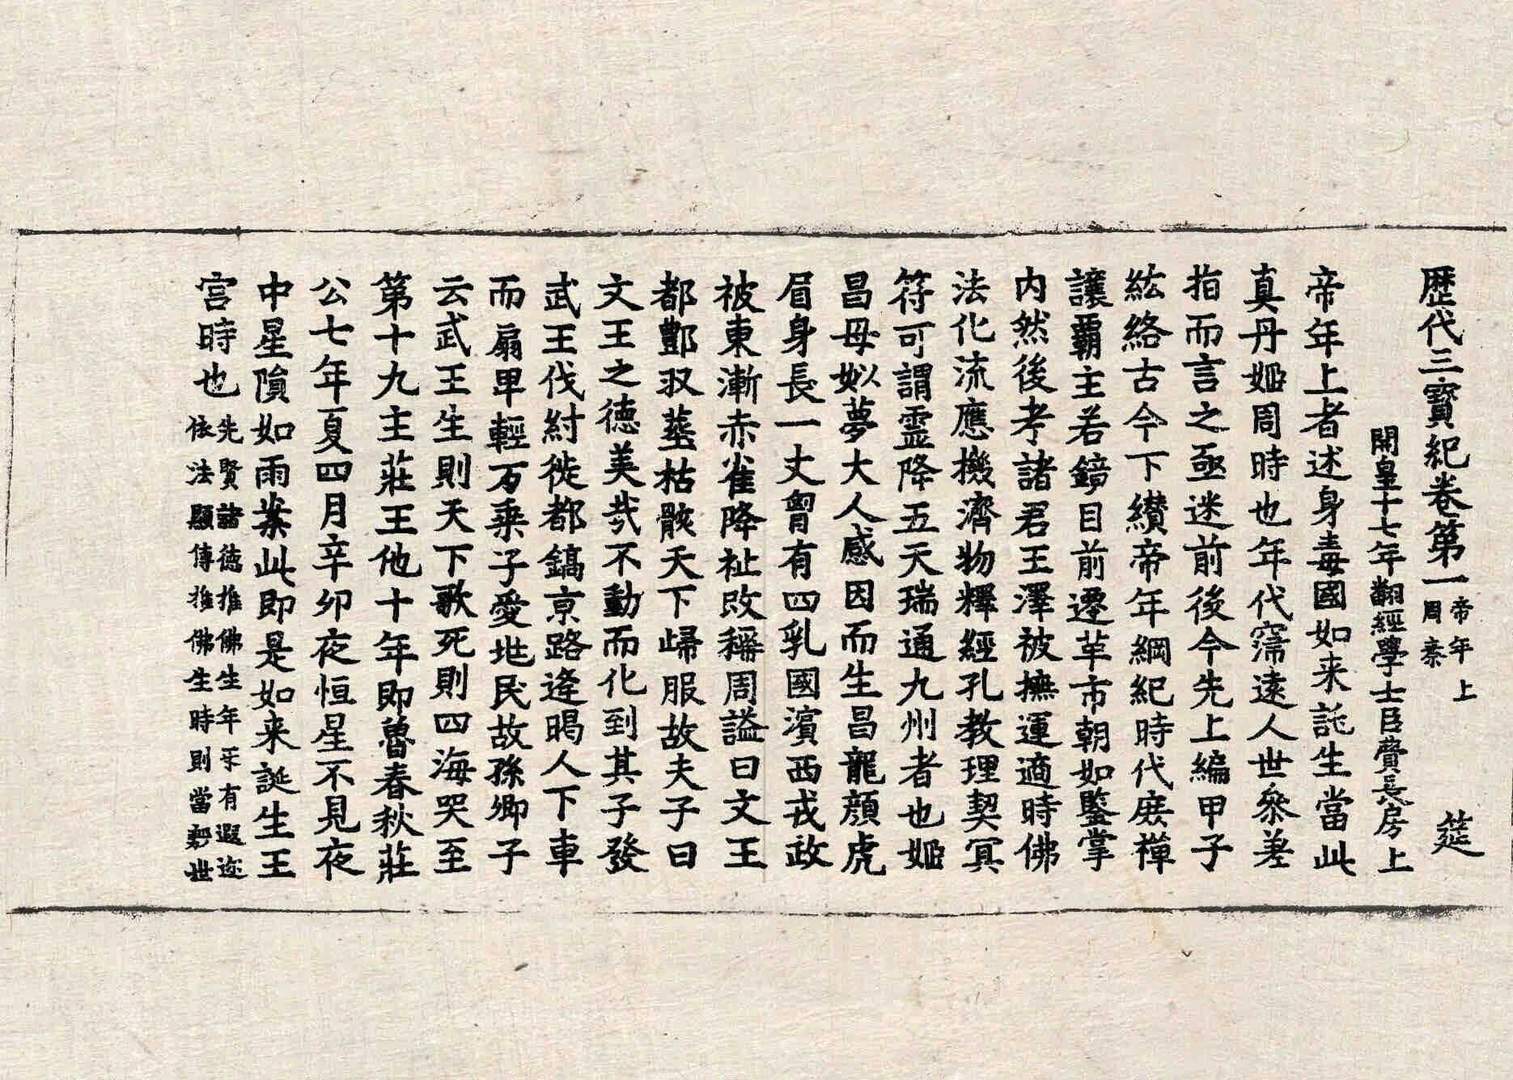 歷代三寶紀卷第一 帝年上 周秦 筵
開皇十七年翻經學士臣費長房上
帝年上者述身毒國如来託生當此
真丹姬周時也年代霈遠人世叅差
指而言之亟迷前後今先上編甲子
紘絡古今下纘帝年綱紀時代庶禪
讓霸主若鏡目前遷革市朝如鑒掌
内然後孝諸君王澤被撫運適時佛
法化流應機濟物釋經孔教理契冥
符可謂霊降五天瑞通九州者也姬
昌母姒夢大人感因而生昌龍顔虎
眉身長一丈胷有四乳國濱西戎政
被東漸赤雀降祉改稱周謚曰文王
都酆収葬枯骸天下歸服故夫子曰
文王之德美㦲不動而化到其子發
武王伐紂徙都鎬京路逢暍人下車
而扇畢輕万乗子愛地民故孫卿子
云武王生則天下歌死則四海哭至
第十九主莊王他十年即魯春秋莊
公七年夏四月辛夘夜恒星不見夜
中星隕如雨案此即是如来誕生王
宫時也 先賢諸德推佛生年互有遐迩
依法顯傳推佛生時則當殷世